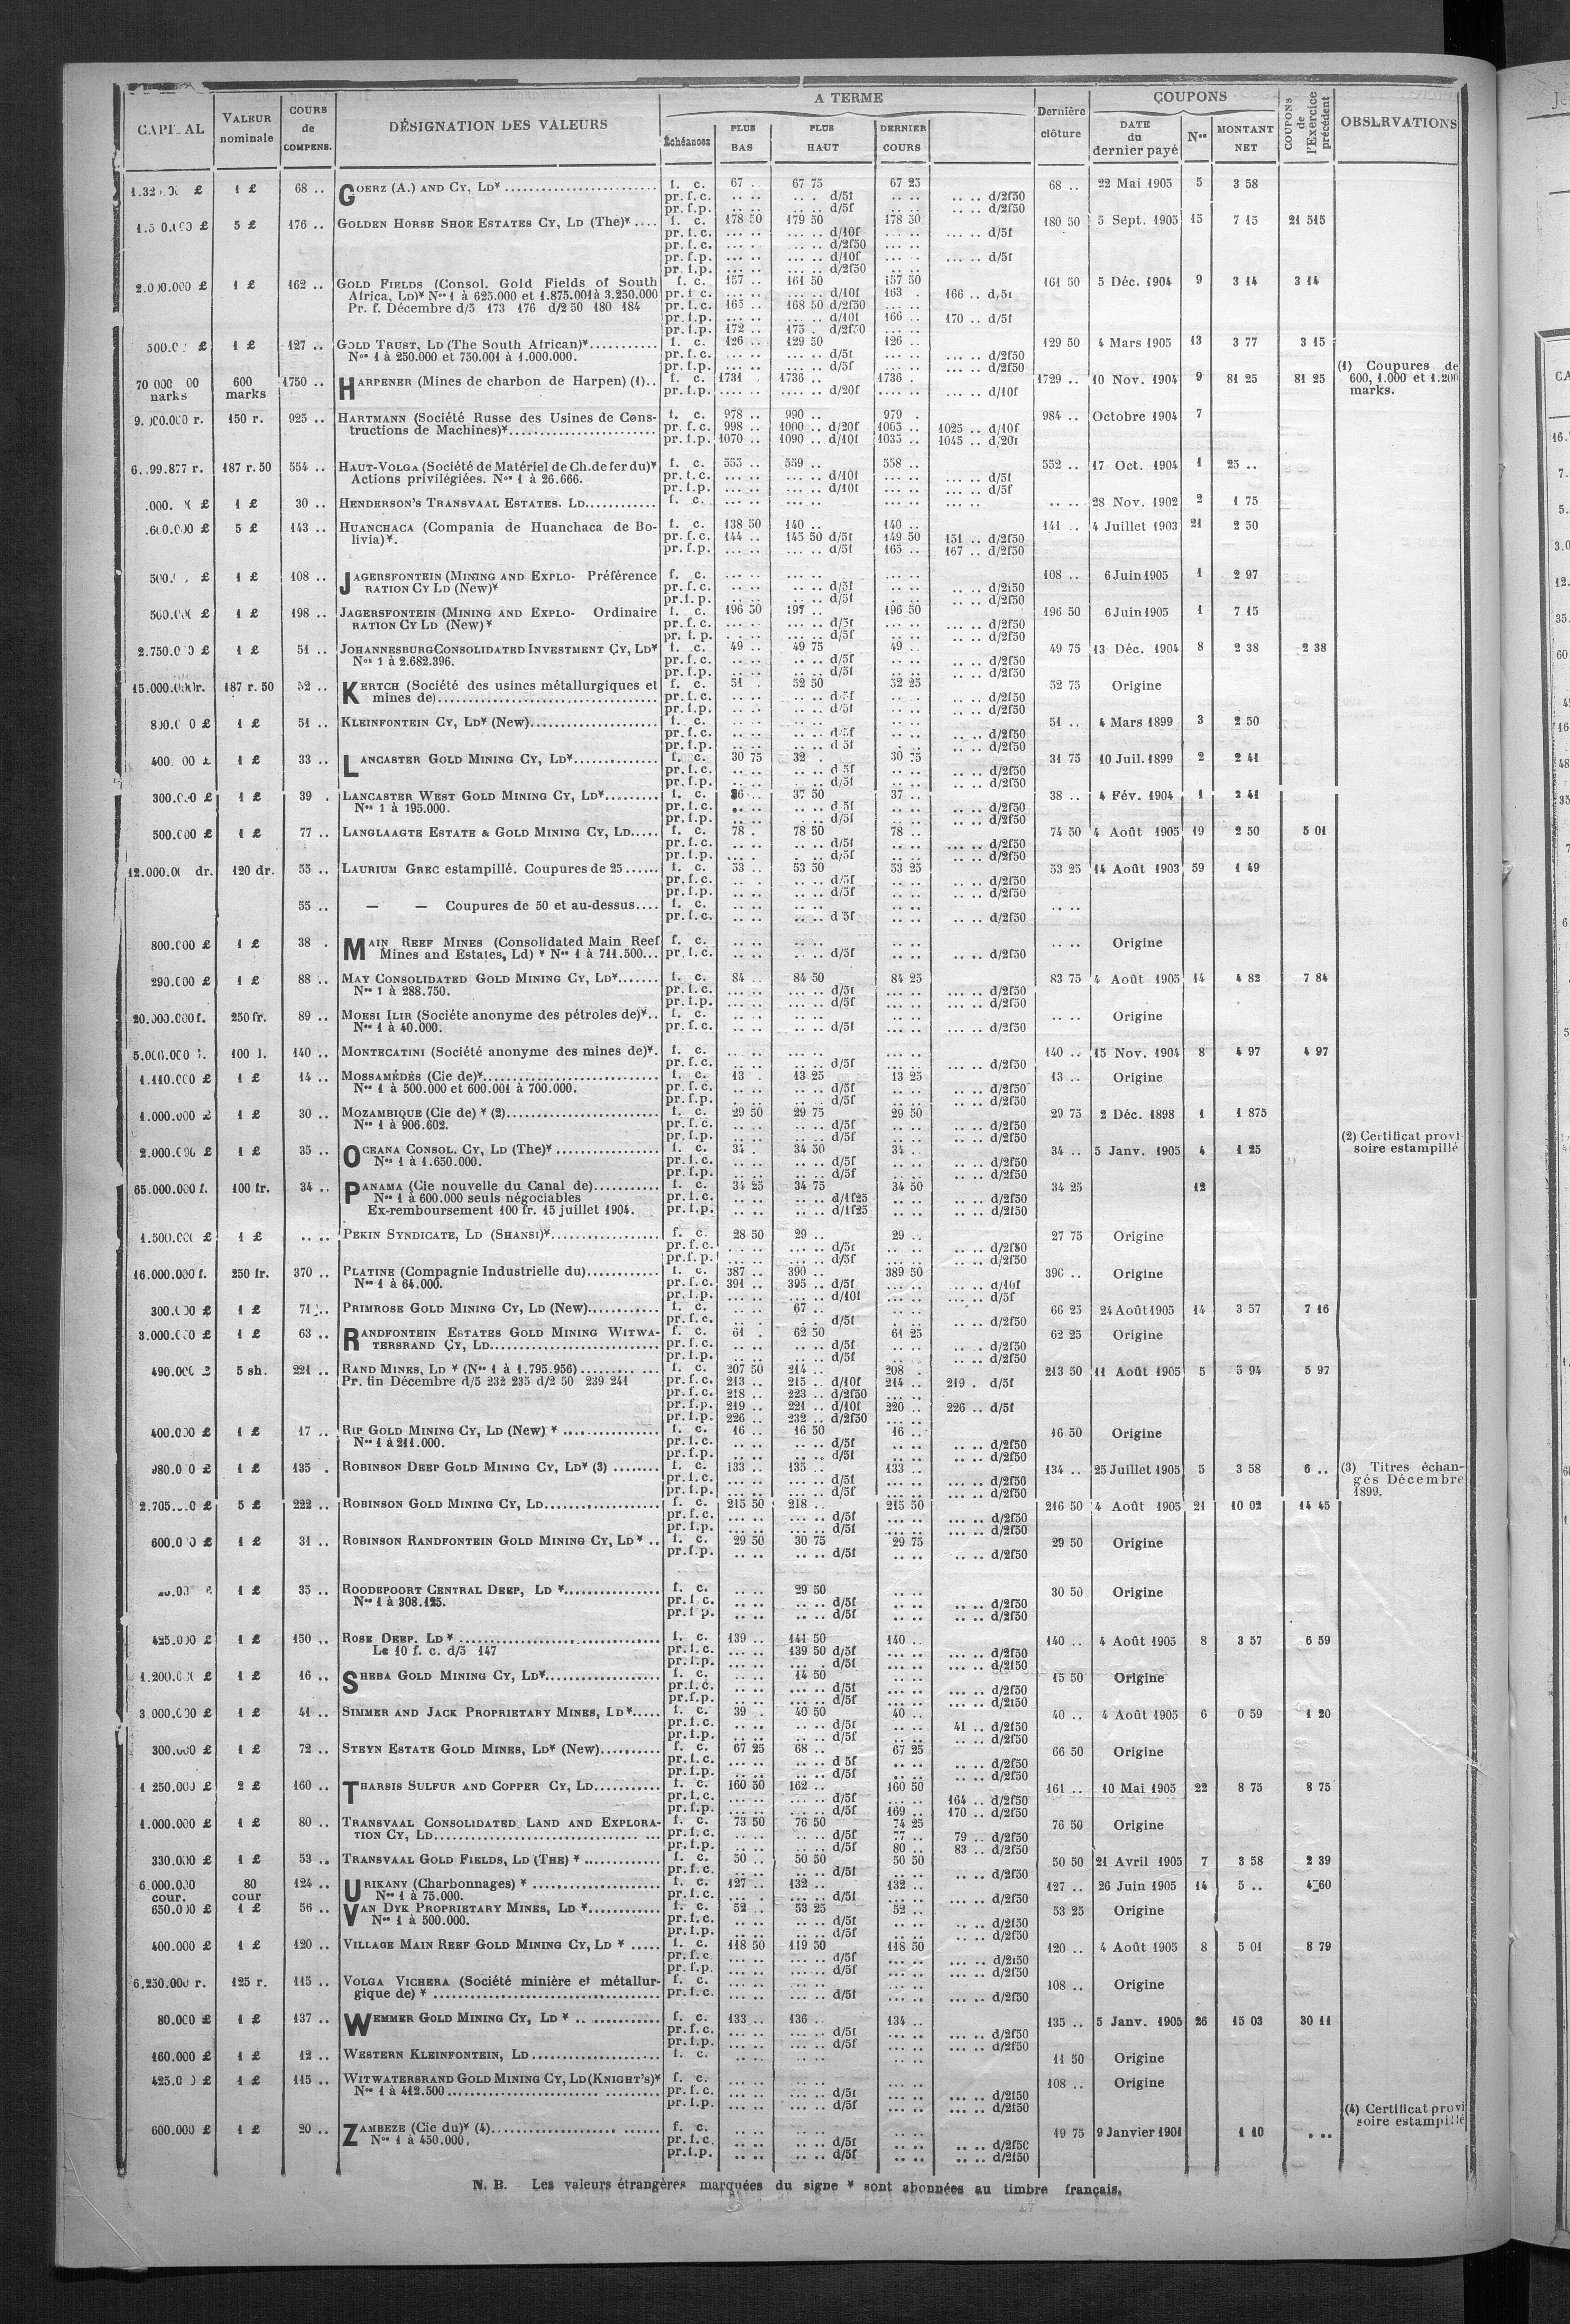 CAPITAL VALEUR nominale COURS de COMPENS. DÉSIGNATION DES VALEURS A TERME Échéances PLUS BAS PLUS HAUT DERNIER COURS Dernière clôture COUPONS DATE du dernier payé Nos MONTANT NET COUPONS de l'Exercice précédent OBSERVATIONS
1 £ 68 .. GOERZ (A.) AND CY, LD* f. c. 67 .. 67 75 67 25 68 .. 22 Mai 1905 5 3 58
pr. f. c. d/5f d/2f50
pr. f. p. d/5f d/2f50
5 £ 176 .. GOLDEN HORSE SHOE ESTATES CY, LD (The)* f. c. 178 50 179 50 178 50 180 50 5 Sept. 1905 15 7 15 21 515
pr. f. c. d/10f d/5f
pr. f. c. d/2f50
pr. f. p. d/10f d/5f
pr. f. p. d/2f50
2.000.000 £ 1 £ 162 .. GOLD FIELDS (Consol. Gold Fields of South f. c. 157 .. 161 50 157 50 161 50 5 Déc. 1904 9 3 14 3 14
Africa, LD)* Nos 1 à 625.000 et 1.875.001 à 3.250.000 pr. f. c. d/10f 163 . 166 .. d/5f
Pr. f. Décembre d/5 173 176 d/2 50 180 184 pr. f. c. 165 .. 168 50 d/2f50
pr. f. p. d/10f 166 .. 170 .. d/5f
pr. f. p. 172 .. 175 . d/2f50
1 £ 127 .. GOLD TRUST, LD (The South African)* f. c. 126 .. 129 50 126 .. 129 50 4 Mars 1905 13 3 77 3 15
Nos 1 à 250.000 et 750.001 à 1.000.000. pr. f. c. d/5f d/2f50
pr. f. p. d/5f d/2f50
600 marks 1750 .. HARPENER (Mines de charbon de Harpen) (1).. f. c. 1731 1736 .. 1736 . 1729 .. 10 Nov. 1904 9 81 25 81 25 (1) Coupures de 600, 1.000 et 1.200 marks.
pr. f. p. d/20f d/10f
150 r. 925 .. HARTMANN (Société Russe des Usines de Cons- f. c. 978 .. 990 .. 979 . 984 .. Octobre 1904 7
tructions de Machines)* pr. f. c. 998 .. 1000 .. d/20f 1005 .. 1025 .. d/10f
pr. f. p. 1070 .. 1090 .. d/10f 1035 .. 1045 .. d/20f
187 r. 50 554 .. HAUT-VOLGA (Société de Matériel de Ch. de fer du)* f. c. 555 .. 559 .. 558 .. 552 .. 17 Oct. 1904 1 25 ..
Actions privilégiées. Nos 1 à 26.666. pr. f. c. d/10f d/5f
pr. f. p. d/10f d/5f
1 £ 30 .. HENDERSON'S TRANSVAAL ESTATES. LD f. c. 28 Nov. 1902 2 1 75
5 £ 143 .. HUANCHACA (Compania de Huanchaca de Bo- f. c. 138 50 140 .. 140 .. 141 .. 4 Juillet 1903 21 2 50
livia)*. pr. f. c. 144 .. 145 50 d/5f 149 50 151 .. d/2f50
pr. f. p. d/5f 165 .. 167 .. d/2f50
1 £ 108 .. JAGERSFONTEIN (MINING AND EXPLO- Préférence f. c. 108 .. 6 Juin 1905 1 2 97
RATION CY LD (New)* pr. f. c. d/5f d/2f50
pr. f. p. d/5f d/2f50
1 £ 198 .. JAGERSFONTEIN (MINING AND EXPLO- Ordinaire f. c. 196 50 197 .. 196 50 196 50 6 Juin 1905 1 7 15
RATION CY LD (New)* pr. f. c. d/5f d/2f50
pr. f. p. d/5f d/2f50
1 £ 51 .. JOHANNESBURG CONSOLIDATED INVESTMENT CY, LD* f. c. 49 .. 49 75 49 .. 49 75 13 Déc. 1904 8 2 38 2 38
Nos 1 à 2.682.396. pr. f. c. d/5f d/2f50
pr. f. p. d/5f d/2f50
187 r. 50 52 .. KERTCH (Société des usines métallurgiques et f. c. 51 . 52 50 52 25 52 75 Origine
mines de) pr. f. c. d/5f d/2f50
pr. f. p. d/5f d/2f50
1 £ 51 .. KLEINFONTEIN CY, LD* (New) f. c. 51 .. 4 Mars 1899 3 2 50
pr. f. c. d/5f d/2f50
pr. f. p. d/5f d/2f50
1 £ 33 .. LANCASTER GOLD MINING CY, LD* f. c. 30 75 32 . 30 75 31 75 10 Juil. 1899 2 2 41
pr. f. c. d/5f d/2f50
pr. f. p. d/5f d/2f50
1 £ 39 . LANCASTER WEST GOLD MINING CY, LD* f. c. 36 .. 37 50 37 .. 38 .. 4 Fév. 1904 1 2 41
Nos 1 à 195.000. pr. f. c. d/5f d/2f50
pr. f. p. d/5f d/2f50
500.000 £ 1 £ 77 .. LANGLAAGTE ESTATE & GOLD MINING CY, LD f. c. 78 . 78 50 78 .. 74 50 4 Août 1905 19 2 50 5 01
pr. f. c. d/5f d/2f50
pr. f. p. d/5f d/2f50
120 dr. 55 .. LAURIUM GREC estampillé. Coupures de 25 f. c. 53 .. 53 50 53 25 53 25 14 Août 1903 59 1 49
pr. f. c. d/5f d/2f50
pr. f. p. d/2f50
55 .. — — Coupures de 50 et au-dessus f. c.
pr. f. c. d/5f d/2f50
800.000 £ 1 £ 38 . MAIN REEF MINES (Consolidated Main Reef f. c. Origine
Mines and Estates, Ld) * Nos 1 à 711.500 pr. f. c. d/5f d/2f50
290.000 £ 1 £ 88 .. MAY CONSOLIDATED GOLD MINING CY, LD* f. c. 84 .. 84 50 84 25 83 75 4 Août 1905 14 4 82 7 84
Nos 1 à 288.750. pr. f. c. d/5f d/2f50
pr. f. p. d/5f d/2f50
20.000.000 f. 250 fr. 89 .. MOESI ILIR (Societe anonyme des pétroles de)* f. c. Origine
Nos 1 à 40.000. pr. f. c. d/5f d/2f50
5.000.000 l. 100 l. 140 .. MONTECATINI (Société anonyme des mines de)*. f. c. 140 .. 15 Nov. 1904 8 4 97 4 97
pr. f. c. d/5f d/2f50
1.110.000 £ 1 £ 14 .. MOSSAMÉDÈS (Cie de)* f. c. 13 . 13 25 13 25 13 .. Origine
Nos 1 à 500.000 et 600.001 à 700.000. pr. f. c. d/5f d/2f50
pr. f. p. d/5f d/2f50
1.000.000 £ 1 £ 30 .. MOZAMBIQUE (Cie de) * (2) f. c. 29 50 29 75 29 50 29 75 2 Déc. 1898 1 1 875
Nos 1 à 906.602. pr. f. c. d/5f d/2f50
pr. f. p. d/5f d/2f50 (2) Certificat provi-
2.000.000 £ 1 £ 35 .. OCEANA CONSOL. CY, LD (The)* f. c. 34 . 34 50 34 .. 34 .. 5 Janv. 1905 4 1 25 soire estampillé
Nos 1 à 1.650.000. pr. f. c. d/5f d/2f50
pr. f. p. d/5f d/2f50
65.000.000 f. 100 fr. 34 .. PANAMA (Cie nouvelle du Canal de) f. c. 34 25 34 75 34 50 34 25 12
Nos 1 à 600.000 seuls négociables pr. f. c. d/1f25 d/2f50
Ex-remboursement 100 fr. 15 juillet 1904. pr. f. p. d/1f25 d/2f50
1.500.000 £ 1 £ PEKIN SYNDICATE, LD (SHANSI)* f. c. 28 50 29 .. 29 .. 27 75 Origine
pr. f. c. d/5f d/2f50
pr. f. p. d/5f d/2f50
16.000.000 f. 250 fr. 370 .. PLATINE (Compagnie Industrielle du) f. c. 387 .. 390 .. 389 50 390 .. Origine
Nos 1 à 64.000. pr. f. c. 391 .. 395 .. d/5f d/10f
pr. f. p. d/10f d/5f
1 £ 71 .. PRIMROSE GOLD MINING CY, LD (New) f. c. 67 .. 66 25 24 Août 1905 14 3 57 7 16
pr. f. c. d/5f d/2f50
3.000.000 £ 1 £ 63 .. RANDFONTEIN ESTATES GOLD MINING WITWA- f. c. 61 . 62 50 61 25 62 25 Origine
TERSRAND CY, LD pr. f. c. d/5f d/2f50
pr. f. p. d/5f d/2f50
490.000 £ 5 sh. 221 .. RAND MINES, LD * (Nos 1 à 1.795.956) f. c. 207 50 214 .. 208 . 213 50 11 Août 1905 5 5 94 5 97
Pr. fin Décembre d/5 232 235 d/2 50 239 241 pr. f. c. 213 .. 215 .. d/10f 214 .. 219 . d/5f
pr. f. c. 218 .. 223 .. d/2f50
pr. f. p. 219 .. 221 .. d/10f 220 .. 226 .. d/5f
pr. f. p. 226 .. 232 .. d/2f50
400.000 £ 1 £ 17 .. RIP GOLD MINING CY, LD (New) * f. c. 16 .. 16 50 16 .. 16 50 Origine
Nos 1 à 211.000. pr. f. c. d/5f d/2f50
pr. f. p. d/5f d/2f50
1 £ 135 . ROBINSON DEEP GOLD MINING CY, LD* (3) f. c. 133 .. 135 .. 133 .. 134 .. 25 Juillet 1905 5 3 58 6 .. (3) Titres échan-
pr. f. c. d/5f d/2f50 gés Décembre
pr. f. p. d/5f d/2f50 1899.
5 £ 222 .. ROBINSON GOLD MINING CY, LD f. c. 215 50 218 .. 215 50 216 50 4 Août 1905 21 10 02 14 45
pr. f. c. d/5f d/2f50
pr. f. p. d/5f d/2f50
1 £ 31 .. ROBINSON RANDFONTEIN GOLD MINING CY, LD * .. f. c. 29 50 30 75 29 75 29 50 Origine
pr. f. p. d/5f d/2f50
1 £ 35 .. ROODEPOORT CENTRAL DEEP, LD * f. c. 29 50 30 50 Origine
Nos 1 à 308.125. pr. f. c. d/5f d/2f50
pr. f. p. d/5f d/2f50
425.000 £ 1 £ 150 .. ROSE DEEP. LD * f. c. 139 .. 141 50 140 .. 140 .. 4 Août 1905 8 3 57 6 59
Le 10 f. c. d/5 147 pr. f. c. 139 50 d/5f d/2f50
pr. f. p. d/5f d/2f50
1 £ 16 .. SHEBA GOLD MINING CY, LD* f. c. 14 50 15 50 Origine
pr. f. c. d/5f d/2f50
pr. f. p. d/5f d/2f50
3.000.000 £ 1 £ 41 .. SIMMER AND JACK PROPRIETARY MINES, LD* f. c. 39 . 40 50 40 .. 40 .. 4 Août 1905 6 0 59 1 20
pr. f. c. d/5f 41 .. d/2f50
pr. f. p. d/5f d/2f50
300.000 £ 1 £ 72 .. STEYN ESTATE GOLD MINES, LD* (New) f. c. 67 25 68 .. 67 25 66 50 Origine
pr. f. c. d/5f d/2f50
pr. f. p. d/5f d/2f50
1 250.000 £ 2 £ 160 .. THARSIS SULFUR AND COPPER CY, LD f. c. 160 50 162 .. 160 50 161 .. 10 Mai 1905 22 8 75 8 75
pr. f. c. d/5f 164 .. d/2f50
pr. f. p. d/5f 169 .. 170 .. d/2f50
1.000.000 £ 1 £ 80 .. TRANSVAAL CONSOLIDATED LAND AND EXPLORA- f. c. 73 50 76 50 74 25 76 50 Origine
TION CY, LD pr. f. c. d/5f 77 .. 79 .. d/2f50
pr. f. p. d/5f 80 .. 83 .. d/2f50
330.000 £ 1 £ 53 .. TRANSVAAL GOLD FIELDS, LD (THE) * f. c. 50 .. 50 50 50 50 50 50 21 Avril 1905 7 3 58 2 39
pr. f. c. d/5f d/2f50
6.000.000 cour. 80 cour 124 .. URIKANY (Charbonnages) * f. c. 127 .. 132 .. 132 .. 127 .. 26 Juin 1905 14 5 .. 4 60
Nos 1 à 75.000. pr. f. c. d/5f d/2f50
650.000 £ 1 £ 56 .. VAN DYK PROPRIETARY MINES, LD * f. c. 52 .. 53 25 52 .. 53 25 Origine
Nos 1 à 500.000. pr. f. c. d/5f d/2f50
pr. f. p. d/5f d/2f50
400.000 £ 1 £ 120 .. VILLAGE MAIN REEF GOLD MINING CY, LD * f. c. 118 50 119 50 118 50 120 .. 4 Août 1905 8 5 01 8 79
pr. f. c. d/5f d/2f50
pr. f. p. d/5f d/2f50
6.250.000 r. 125 r. 115 .. VOLGA VICHERA (Société minière et métallur- f. c. 108 .. Origine
gique de) * pr. f. c. d/5f d/2f50
80.000 £ 1 £ 137 .. WEMMER GOLD MINING CY, LD * f. c. 133 .. 136 .. 134 .. 135 .. 5 Janv. 1905 26 15 03 30 11
pr. f. c. d/5f d/2f50
pr. f. p. d/5f d/2f50
160.000 £ 1 £ 12 .. WESTERN KLEINFONTEIN, LD f. c. 11 50 Origine
1 £ 115 .. WITWATERSRAND GOLD MINING CY, LD (KNIGHT'S)* f. c. 108 .. Origine
Nos 1 à 412.500 pr. f. c. d/5f d/2f50
pr. f. p. d/5f d/2f50 (4) Certificat provi
600.000 £ 1 £ 20 .. ZAMBEZE (Cie du)* (4) f. c. 19 75 9 Janvier 1901 1 10 soire estampillé
Nos 1 à 450.000. pr. f. c. d/5f d/2f50
pr. f. p. d/5f d/2f50
N. B. Les valeurs étrangères marquées du signe * sont abonnées au timbre français.